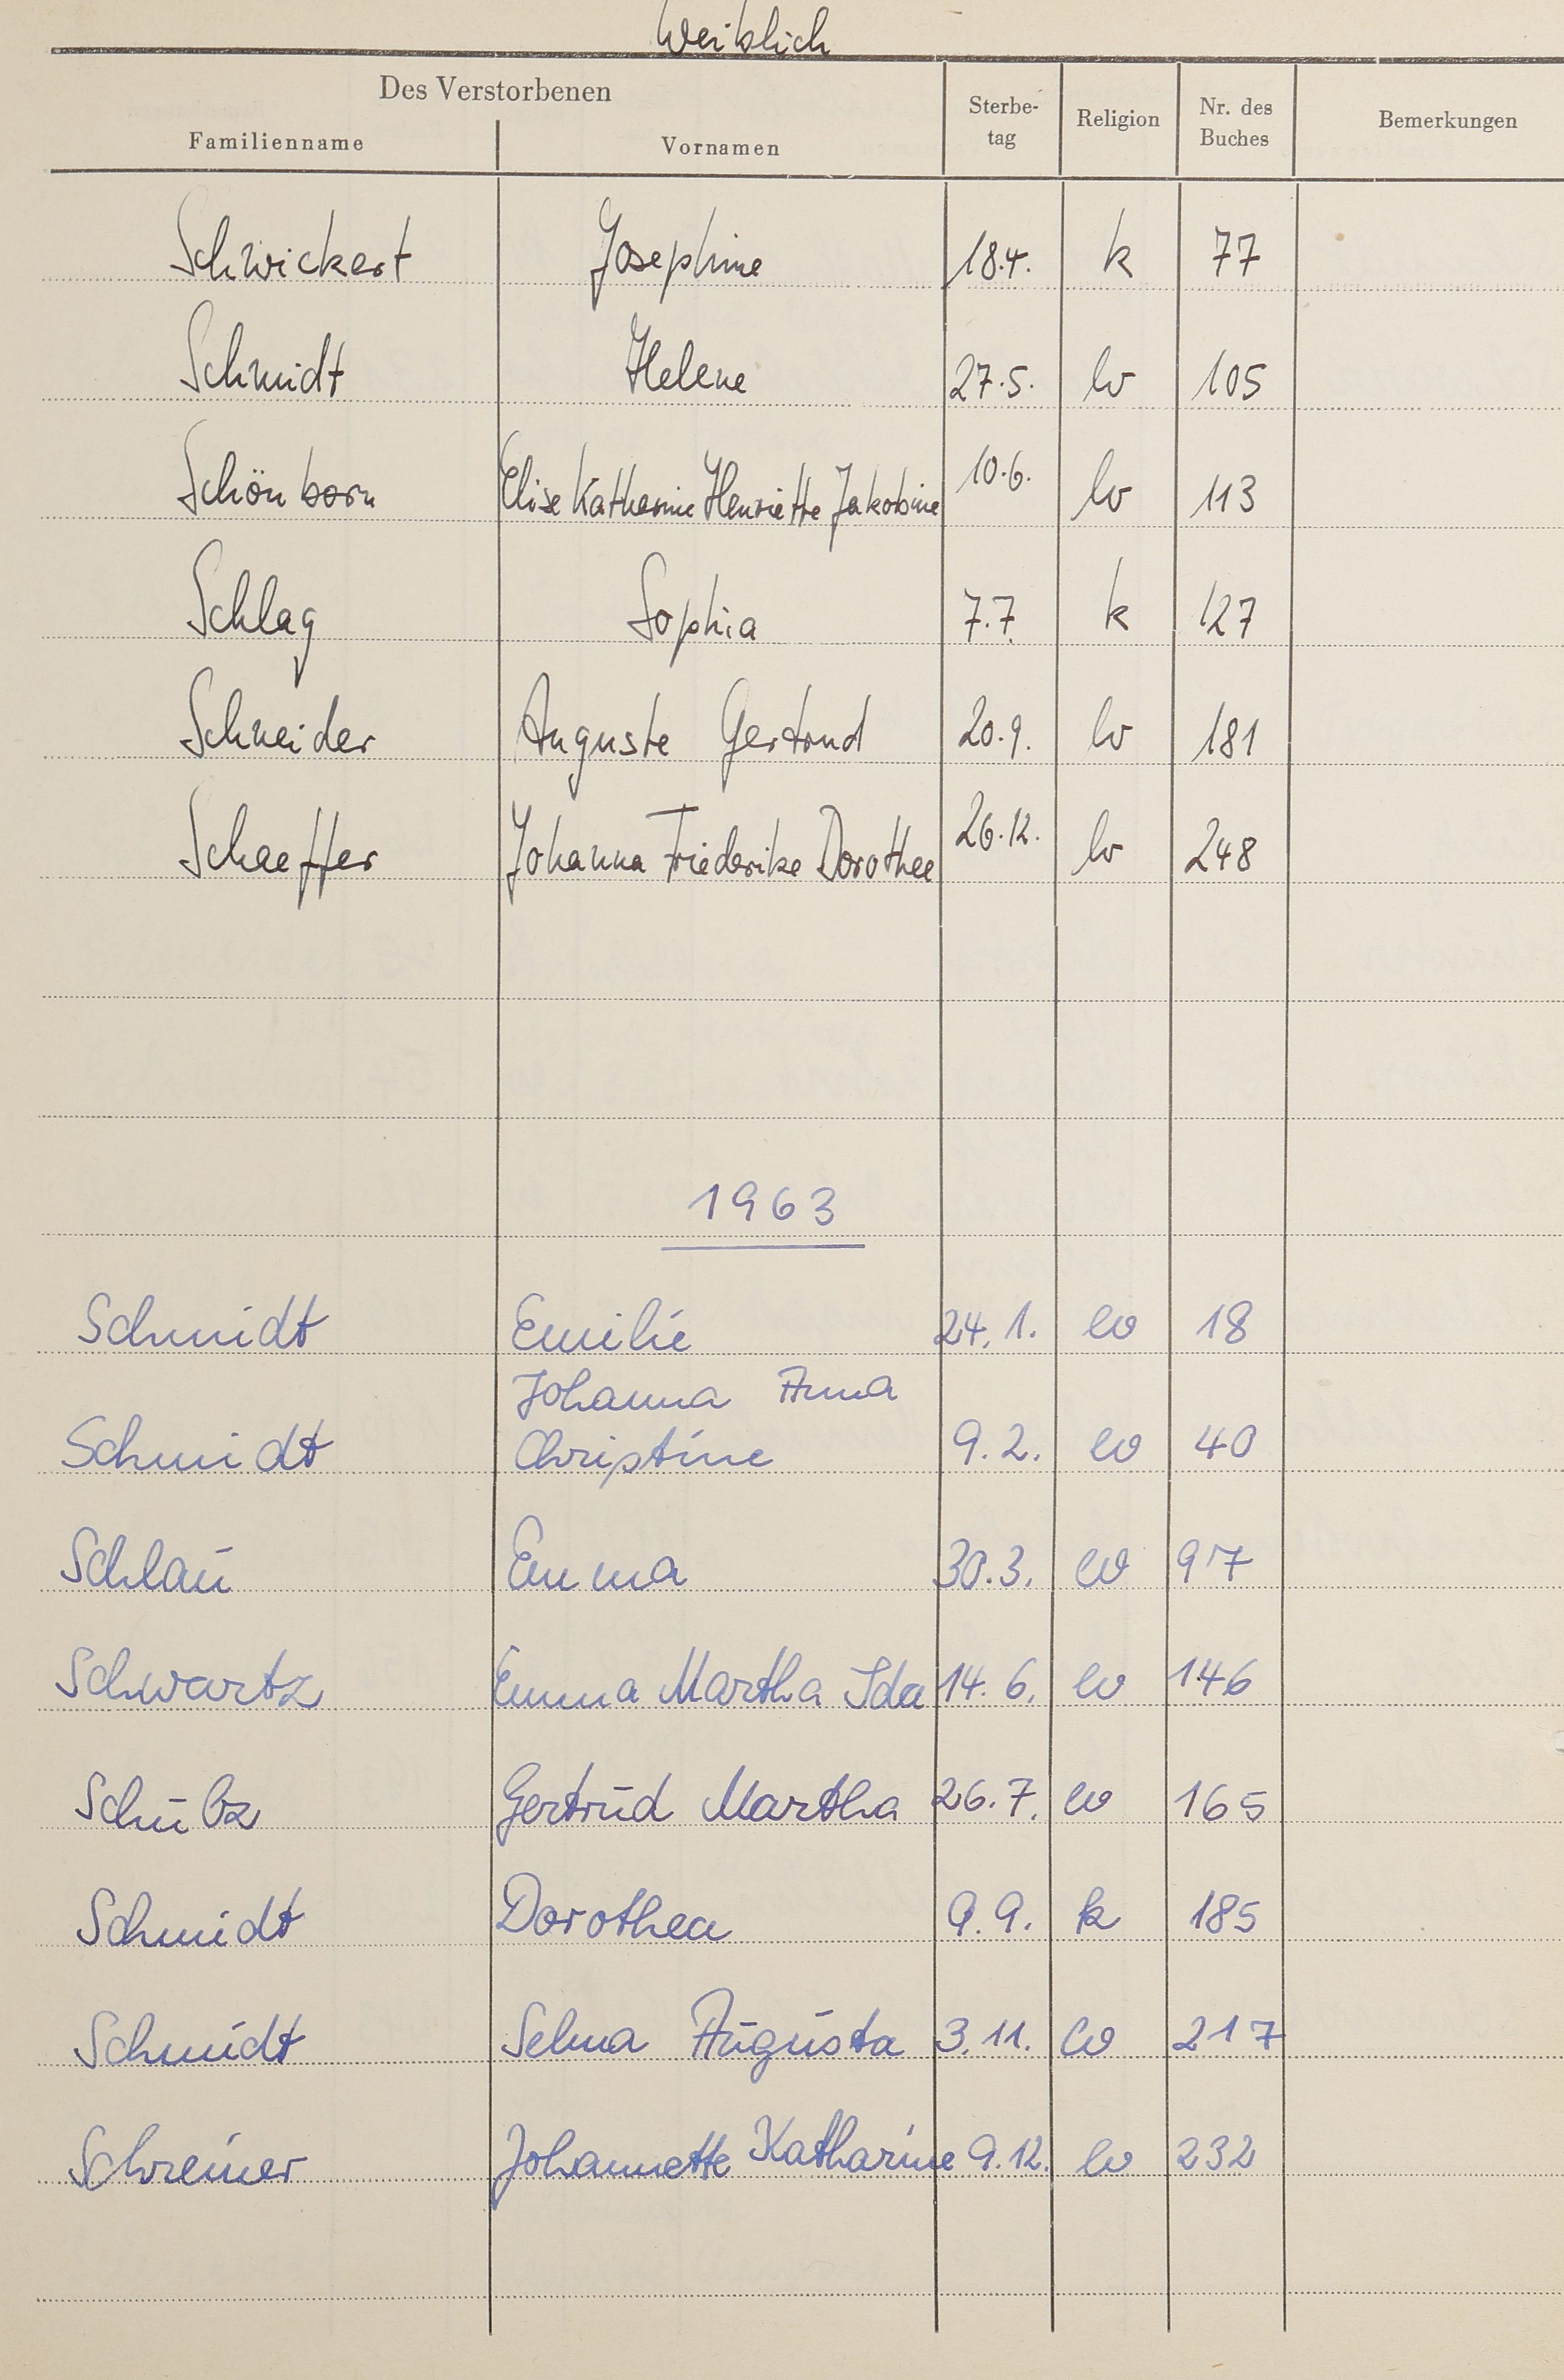 Weiblich
Des Verstorbenen
Familienname Vornamen Sterbe-tag Religion Nr. des Buches Bemerkungen
Schwickert Josephine 18.4. k 77
Schmidt Helene 27.5. ev 105
Schönborn Elise Katharine Henriette Jakobine 10.6. ev 113
Schlag Sophia 7.7. k 127
Schneider Auguste Gertrud 20.9. ev 181
Schaeffer Johanna Friederike Dorothee 26.12. ev 248
1963
Schmidt Emilie 24.1. ev 18
Johanna Anna
Schmidt Christine 9.2. ev 40
Schlau Emma 30.3. ev 97
Schwartz Emma Martha Ida 14.6. ev 146
Schulz Gertrud Martha 26.7. ev 165
Schmidt Dorothea 9.9. k 185
Schmidt Selma Augusta 3.11. ev 217
Schreiner Johannette Katharine 9.12. ev 232